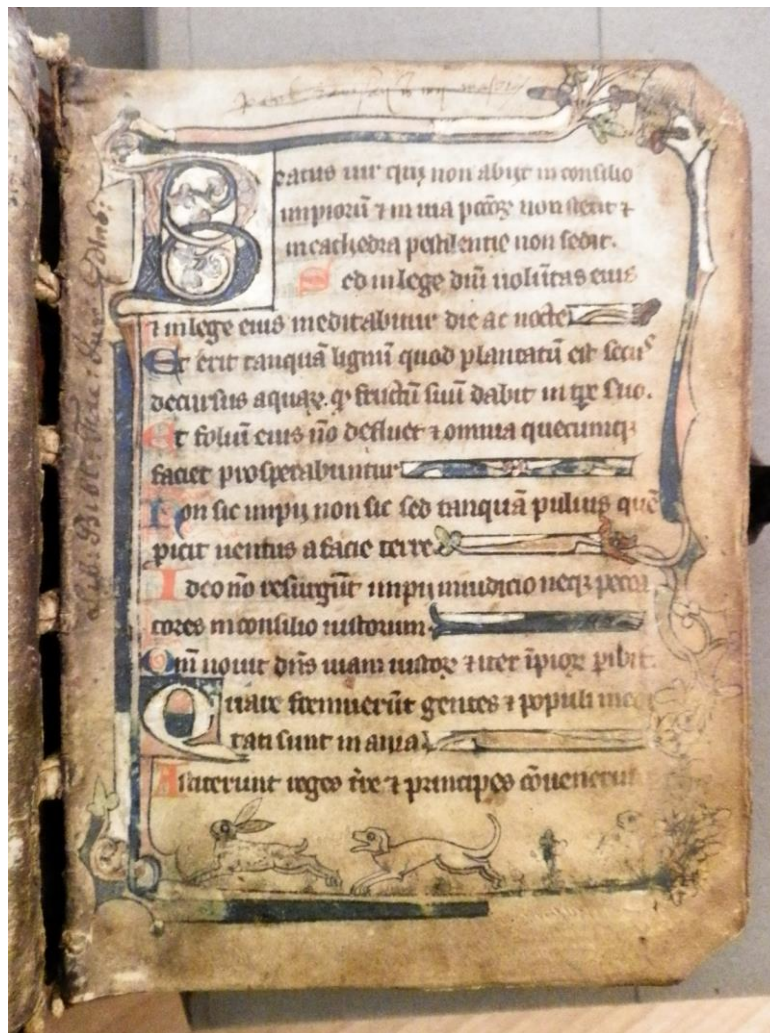 Beatus uir qui non abijt in consilio
impiorū ⁊ in uia pctōꝝ non stetit ⁊
in cathedra pestilentie non sedit.
Sed in lege dnī uolūtas eius
⁊ in lege eius meditabitur die ac nocte
Et erit tanquā lignū quod plantatū est secus
decursus aquaꝝ. qͥ fructū suū dabit in tꝑe suo.
Et foliū eius nō defluet ⁊ omnia quecumqꝫ
faciet prosperabuntur
Non sic impij non sic sed tanquā puluis quē
ꝓicit uentus a facie terre
Ideo nō resurgūt impij in iudicio neqꝫ pecca
tores in consilio iustorum
Qm̄ nouit dn̄s uiam iustoꝝ ⁊ iter īpioꝝ ꝑibit.
Quare fremuerūt gentes ⁊ populi medi
tati sunt inania
Astiterunt reges tr̄e ⁊ principes cōuenerūt